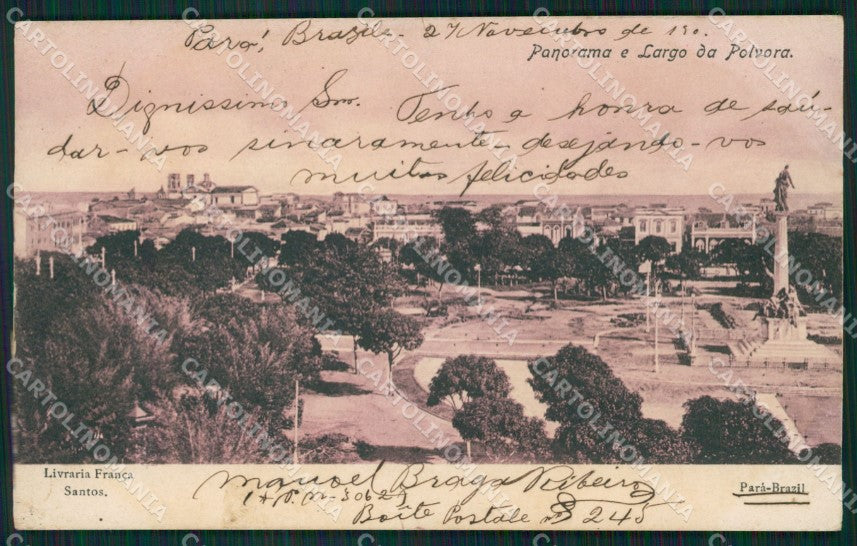 Pará, Brazil - 27 Novembro de 190.
Panorama e Largo da Polvora.
Dignissimo Snr. Tenho a honra de saú-
dar-vos sinceramente desejando-vos
muitas felicidades
Livraria França
Santos.
Manoel Braga Ribeiro
Boîte Postale nº 245
Pará-Brazil
CARTOLINOMANIA.COM